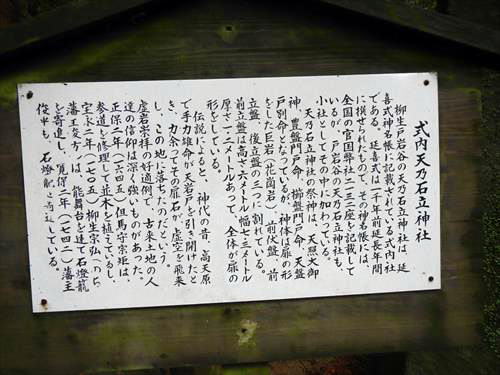 式内天乃石立神社
柳生戸岩谷の天乃石立神社は、延
喜式神名帳に記載されている式内社
である。延喜式は一千年前延長年間
に撰せられたもので、その神名帳には、
全国の官国弊社三一三二座を記載して
いるが、戸岩谷の天乃石立神社も、
小社としてその中に加わっている。
天乃石立神社の祭神は、天照大御
神、豊盤門戸命、櫛盤門戸命、天盤
戸別命となっているが、神体は扉の形
をした巨岩(花崗岩)、前伏盤、前
立盤、後立盤の三つに割れている。
前立盤は高さ六メートル幅七三メートル
厚さ一二メートルあって、全体が扉の
形をしている。
伝説によると、神代の昔、高天原
で手力雄命が天岩戸を引き開けたと
き、力余ってその扉石が、虚空を飛来
し、この地に落ちたのだという。
虚岩崇拝の好適例で、古来土地の人
達の信仰は深く強いものがあった。
正保二年(一六四五)但馬守宗矩は、
参道を修理して並木を植えているし、
宝永二年(一七〇五)柳生宗弘(のち
藩主俊方)は、能舞台を達て石燈籠
を寄進し、寛保二年(一七四二)藩主
俊平も、石燈籠を寄進している。